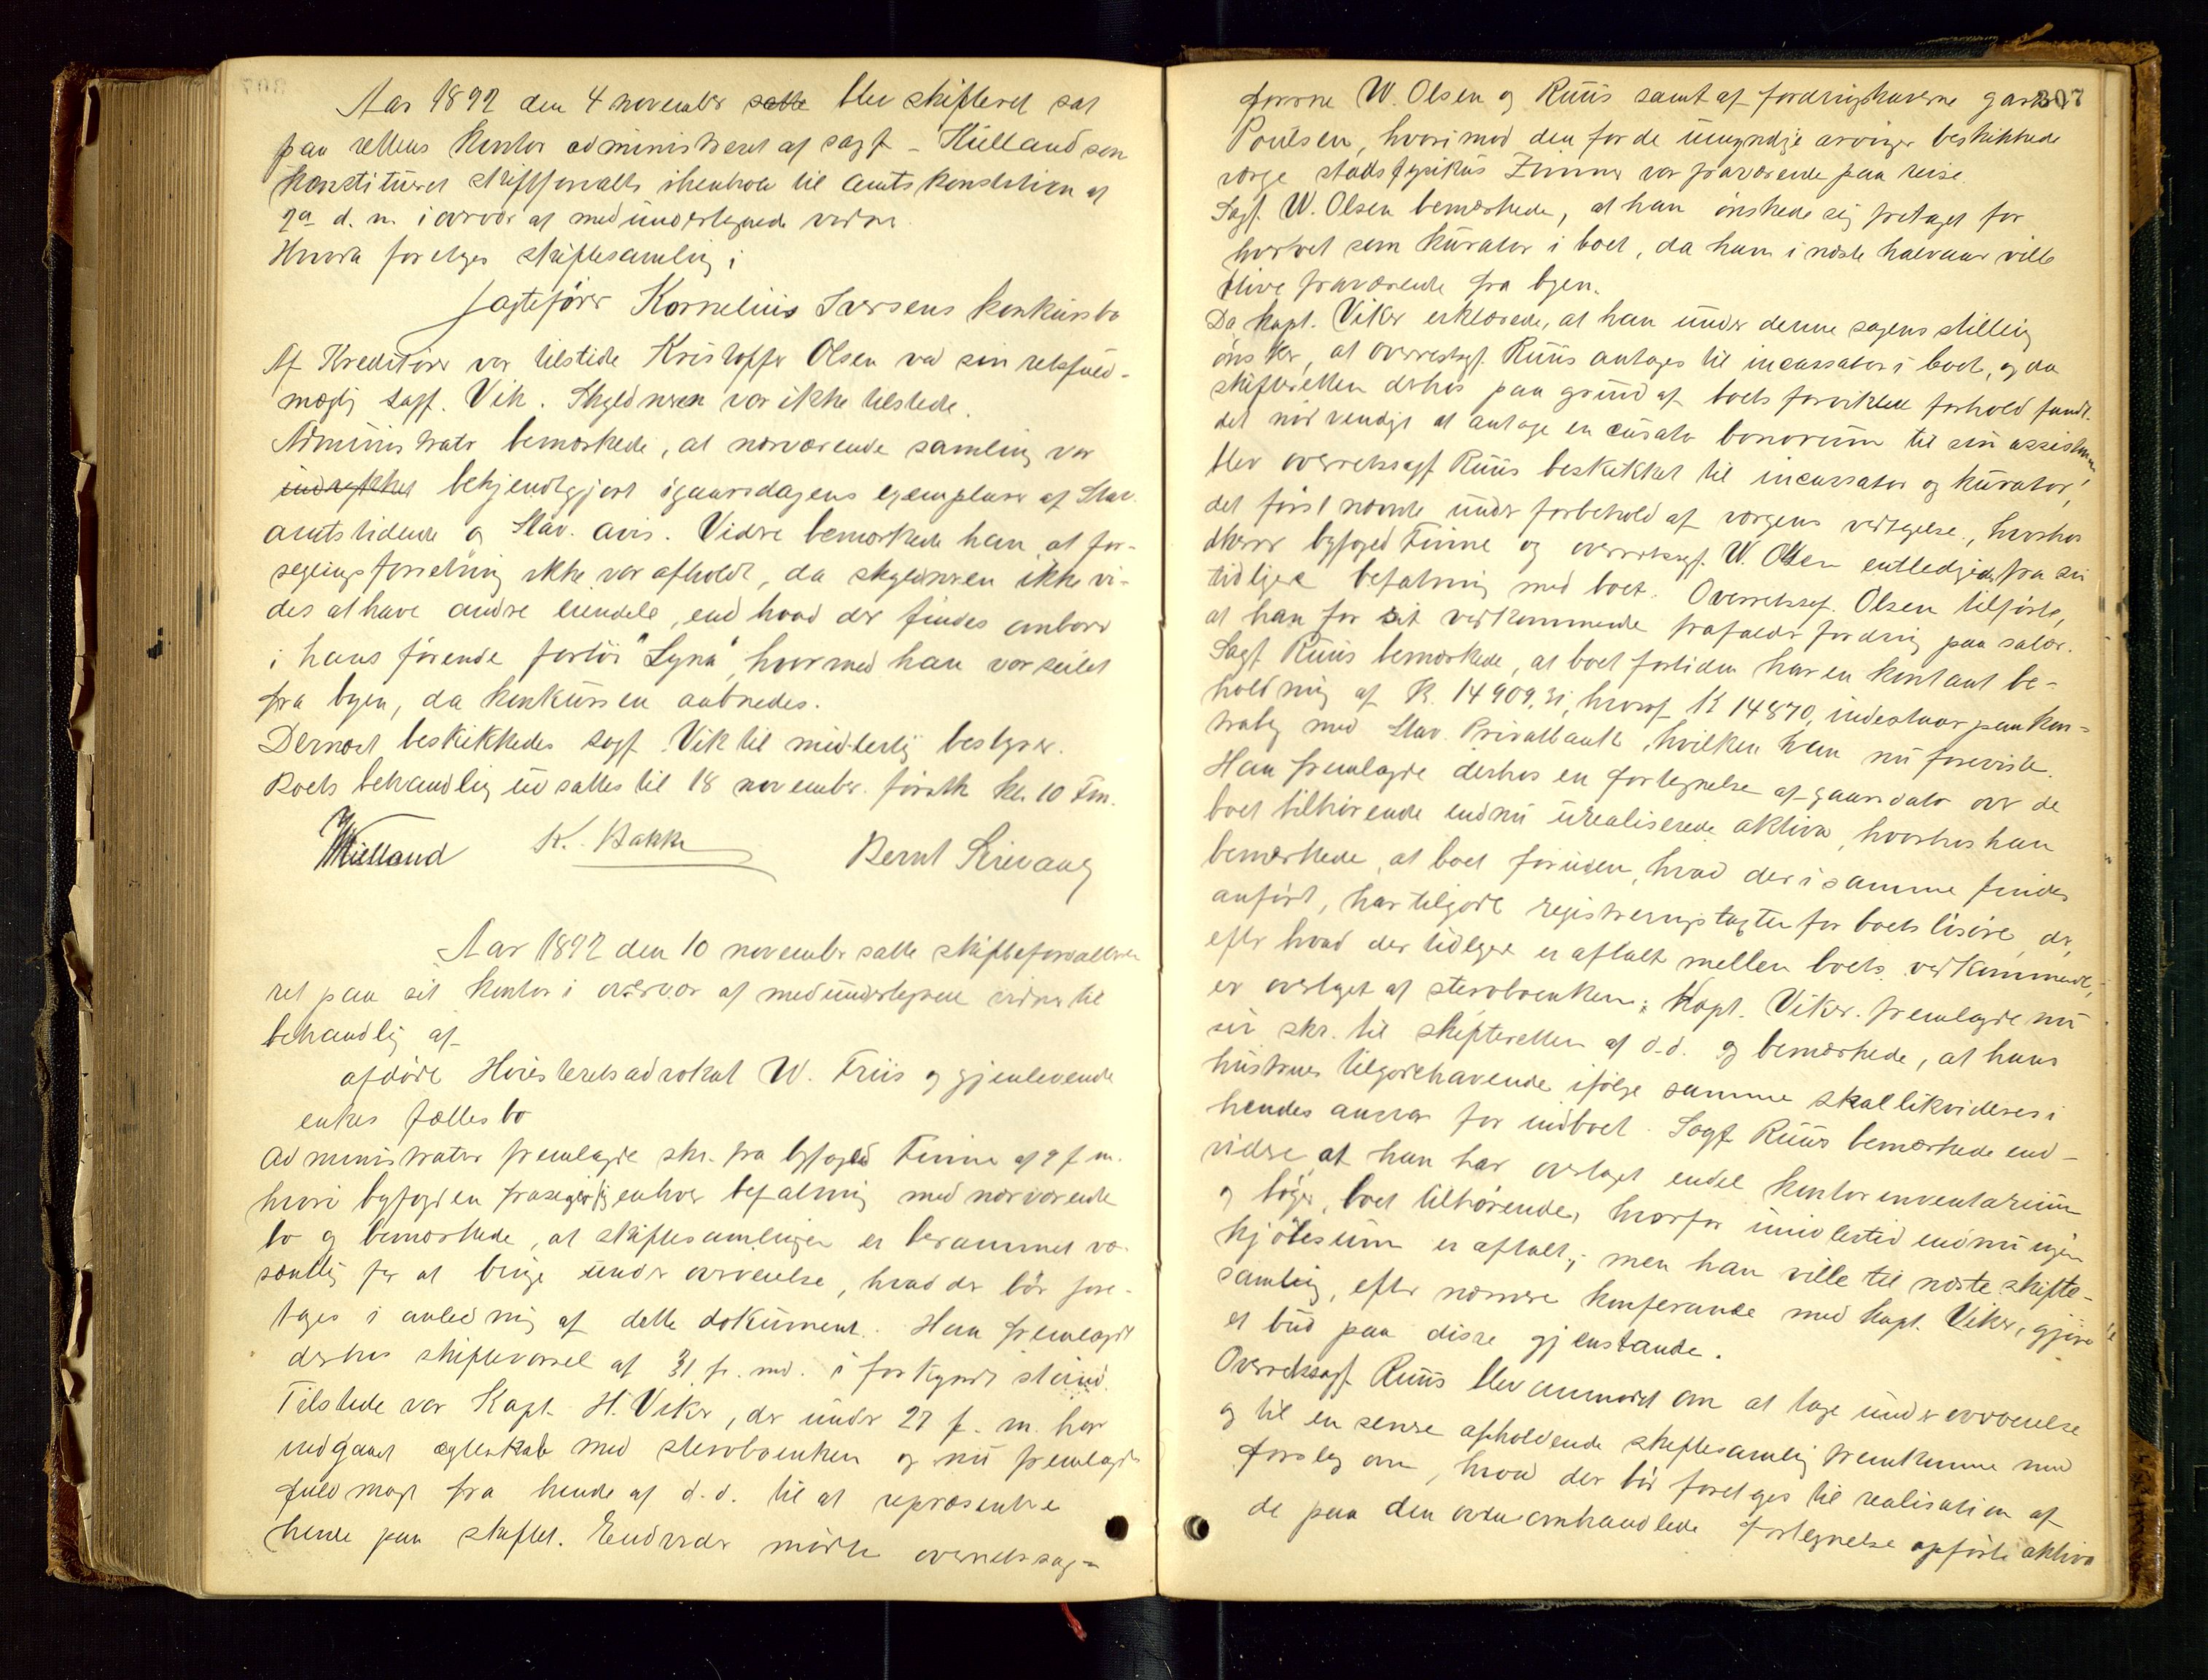 Aar 1892 den 4 november satte blev skifteret sat
paa rettens kontor administreret af sagf. Kielland som
konstitueret skifteforvalter ihenhold til Amts konstition af
2a d. m. i overvær af medundertegnede vidner.
Hvorda foretages skiftesamling i
Jagtefører Kornelius Iversens konkursbo
Af Kreditorer var tilstede Kristoffer Olsen ved sin retsfuld-
mægtig sagf. Vik. Skyldneren var ikke tilstede.
Administrator bemærkede, at nærværende samling var
indrykket bekjendtgjort igaarsdagens exemplarer af Stav.
amtstidende og Stav. avis. Videre bemærkede han, at for-
seglingsforretning ikke var afholdt, da skyldneren ikke vi-
des at have andre eiendele, end hvad der findes ombord
i hans førende fartøi "Lyna", hvormed han var seilet
fra byen, da konkursen aabnedes.
Dernæst beskikkedes sagf. Vik til midlertidig bestyrer.
Boets behandling udsattes til 18 november førstk kl. 10 Fm.
Kielland K. Bakke Bernt Sirevaag
Aar 1892 den 10 november satte skifteforvalteren
ret paa sit kontor i overvær af medundertegnede vidner til
behandling af
afdøde Høiesteretsadvokat W. Friis og gjenlevende
enkes fællesbo
Administrator fremlagde skr. fra byfoged Finne af 9 f. m.
hvori byfogden frasiger sig enhver befatning med nærværende
bo og bemærkede, at skiftesamlingen er berammet væ-
sentlig for at bringe under overveielse, hvad der bør fore-
tages i anledning af dette dokument. Han fremlagde
derhos skiftevarsel af 31 f. md. i forkyndt stand.
Tilstede var Kapt. H. Viker, der under 27 f. m. har
indgaaet ægteskab med stervboenken og nu fremlagde
fuldmagt fra hende af d.d. til at repræsentere
hende paa skiftet. Endvidere mødte overretssag-
307
førerne W. Olsen og Ruus samt af fordringshaverne gartner
Poulsen, hvorimod den for de umyndige arvinger beskikkede
værge stadsfysikus Zimmer var fraværende paa reise.
Sagf. W. Olsen bemærkede, at han ønskede sig fritaget for
hvervet som kurator i boet, da han i næste halvaar ville
blive fraværende fra byen.
Da kapt. Viker erklærede, at han under denne sagens stilling
ønsker, at overretssagf. Ruus antages til incassator i boet, og da
skifteretten derhos paa grund af boets forviklede forhold fandt
det nødvendigt at antage en curator bonorum til sin assistance,
blev overretssagf. Ruus beskikket til incassator og kurator,
det først nævnte under forbehold af værgens vedtagelse, hvorhos
derover byfoged Finne og overretssagf. W. Olsen entledigedes fra sin
tidligere befatning med boet. Overretssagf. Olsen tilførte,
at han for sit vedkommende frafaldt fordring paa salær.
Sagf. Ruus bemærkede, at boet fortiden har en kontant be-
holdning af K. 14909,31, hvoraf K 14870, indestaar paa kon-
trabog med Stav. Privatbank, hvilken han nu foreviste.
Han fremlagde derhos en fortegnelse af gaarsdato over de
boet tilhørende endnu urealiserede aktiva, hvorhos han
bemærkede, at boet foruden, hvad der i samme findes
anført, har tilgode registreringstagsten for boets løsøre, der,
efter hvad der tidligere er aftalt mellem boets vedkommende,
er overtaget af stervboenken; Kapt. Viker fremlagde nu
sin skr. til skifteretten af d.d. og bemærkede, at hans
hustrues tilgodehavende ifølge samme skal likvideres i
hendes ansvar for indboet. Sagf. Ruus bemærkede end-
videre, at han har overtaget endel kontorinventarium
og bøger, boet tilhørende, hvorfor imidlertid endnu ingen
kjøbesum er aftalt; men han ville til næste skifte-
samling, efter nærmere konferance med kapt. Viker, gjøre
et bud paa disse gjenstande.
Overretssagf. Ruus blev anmodet om at tage under overveielse
og til en senere afholdende skiftesamling fremkomme med
forslag om, hvad der bør foretages til realisation af
de paa den ovenomhandlede fortegnelse opførte aktiva